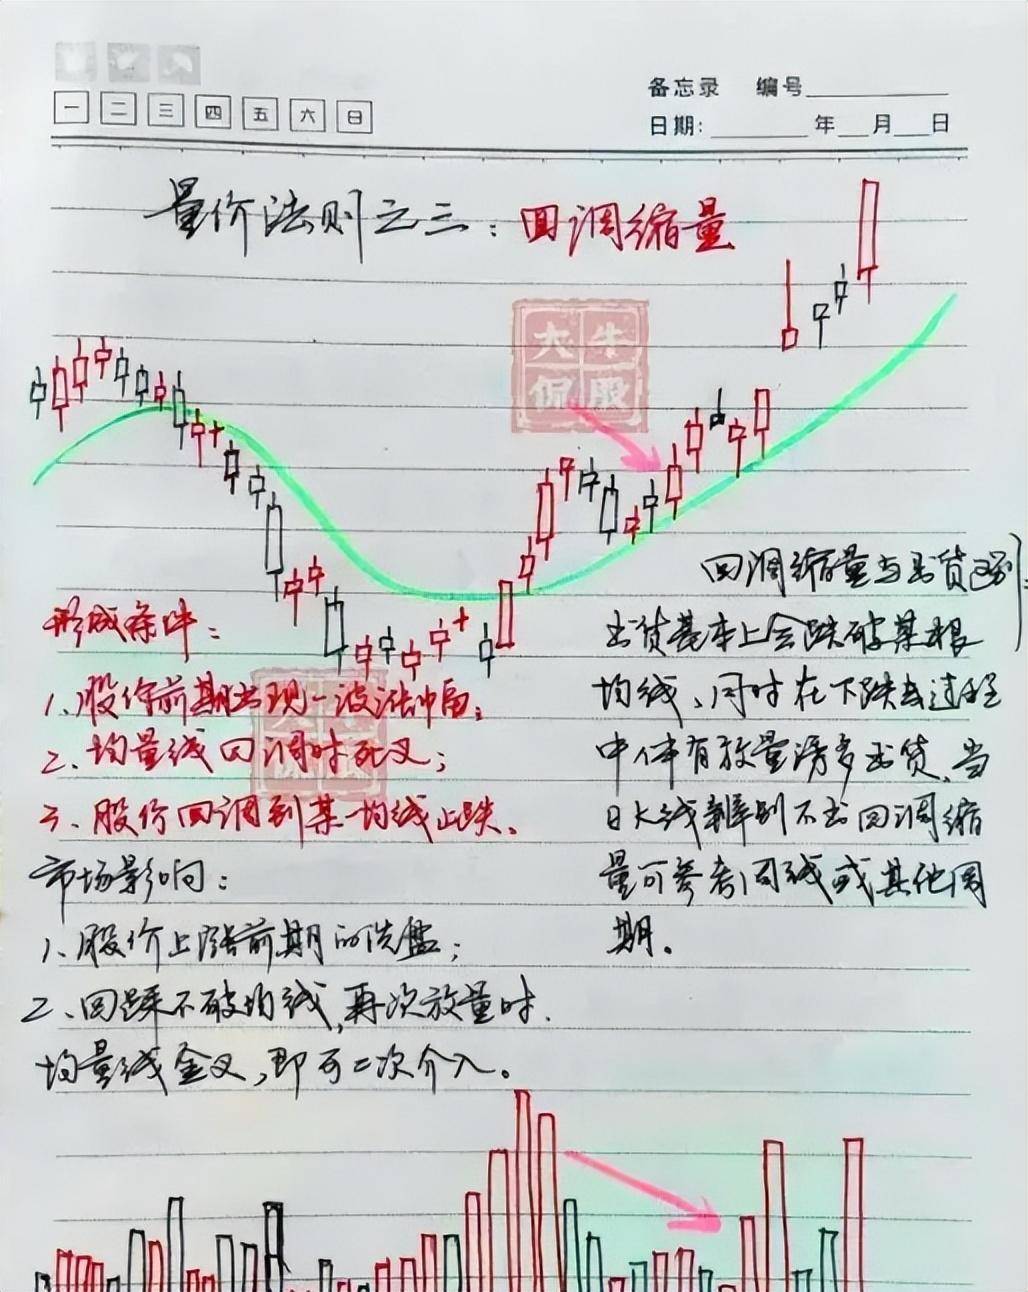 一 二 三 四 五 六 日
备忘录 编号
日期: 年 月 日
量价法则之三：回调缩量
大牛
侃股
回调缩量与出货区别：
出货基本上会跌破某根
均线、同时在下跌去过程
中伴有放量诱多出货、当
日K线辨别不出回调缩
量可参考周线或其他周
期。
形成条件：
1、股价前期出现一波涨幅；
2、均量线回调时死叉；
3、股价回调到某一均线止跌。
市场影响：
1、股价上涨前期的洗盘；
2、回踩不破均线，再次放量时．
均量线金叉，即可二次介入。